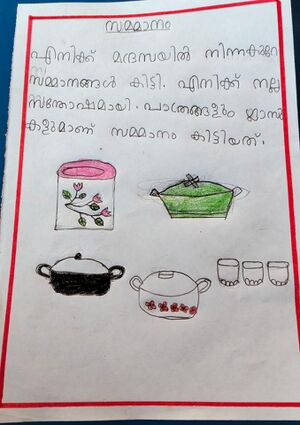 സമ്മാനം
എനിക്ക് മദ്രസയിൽ നിന്ന്കുറേ
സമ്മാനങ്ങൾ കിട്ടി. എനിക്ക് നല്ല
സന്തോഷമായി. പാത്രങ്ങളും ഗ്ലാസു
കളുമാണ് സമ്മാനം കിട്ടിയത്.